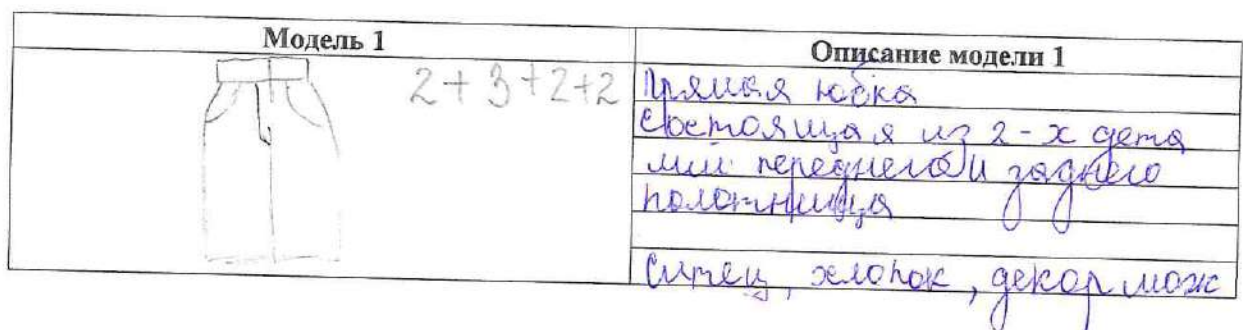 Модель 1
Описание модели 1
2+3+2+2
Прямая юбка
состоящая из 2-х дета
лий переднего и заднего
полотнища
Ситец, хлопок, декор мож